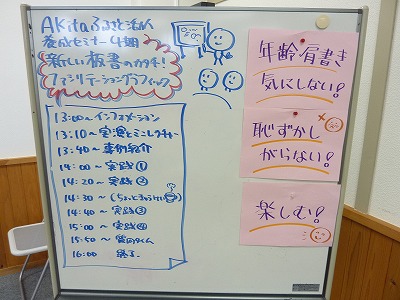 AKitaふるさと活人
養成セミナー4期
新しい板書のカタチ!
ファシリテーショングラフィック
13:00～インフォメーション
13:10～実演とミニレクチャー
13:40～事例紹介
14:00～実践①
14:20～実践②
14:30～(ちょっときゅうけい)
14:40～実践③
15:00～実践④
15:50～質問タイム
16:00 終了
年齢・肩書き
気にしない!
恥ずかし
がらない!
楽しむ!